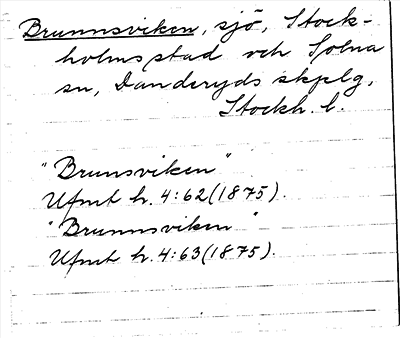 Brunnsviken, sjö, Stock-
holms stad och Solna
sn, Danderyds skplg,
Stockh. l.
"Brunsviken"
Ufmt h. 4:62 (1875).
"Brunnsviken"
Ufmt h. 4:63 (1875).